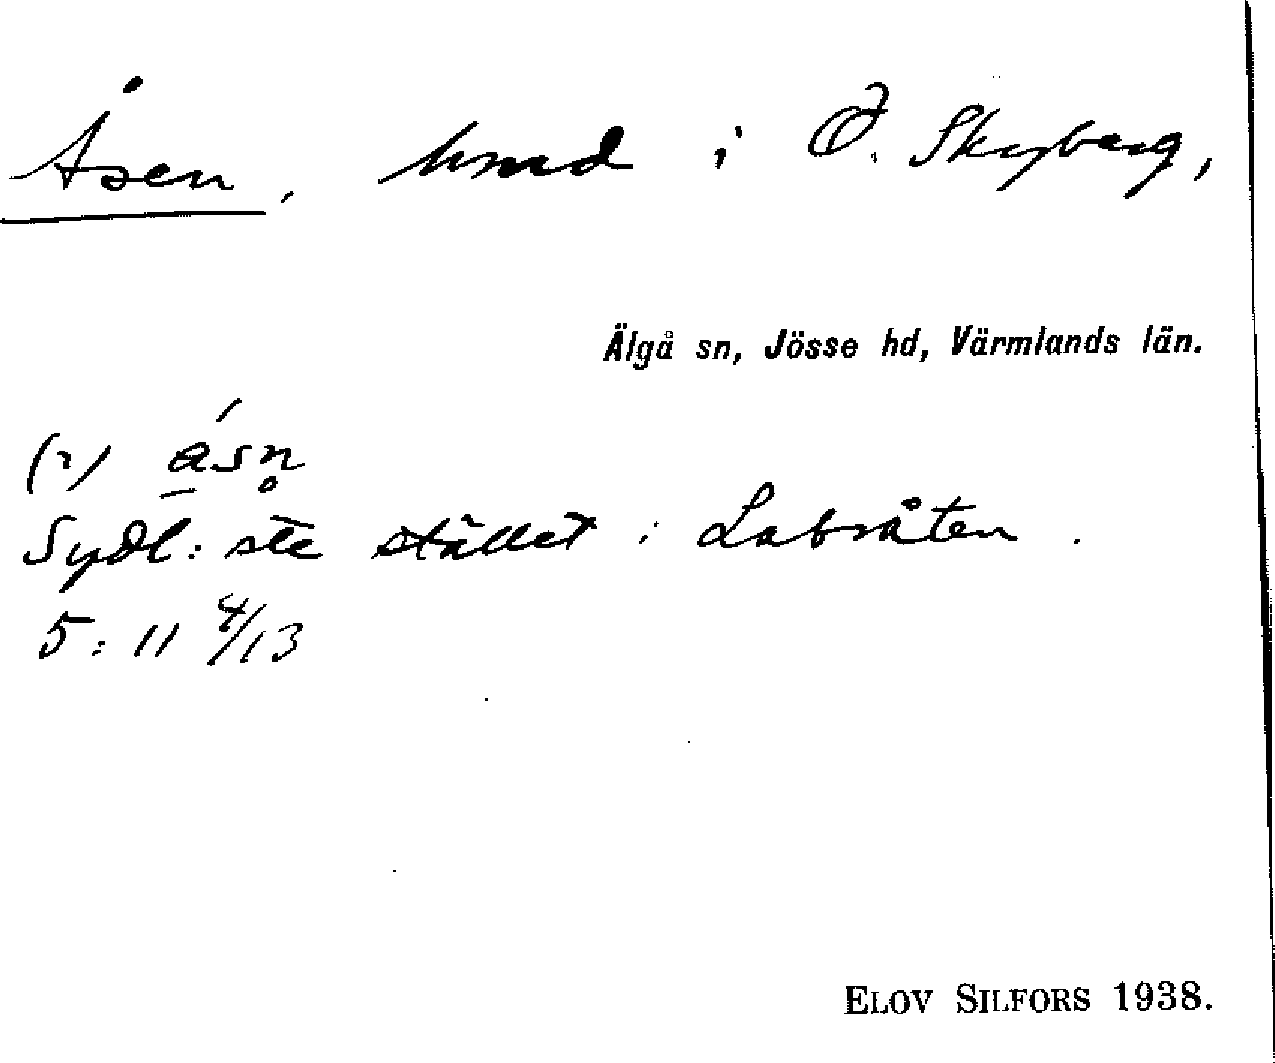 Åsen, hmd i Ö. Skyberg,
Älgå sn, Jösse hd, Värmlands län.
(2) ásn̥
Sydl:ste stället i Labråten.
5:11 4/13
ELOV SILFORS 1938.